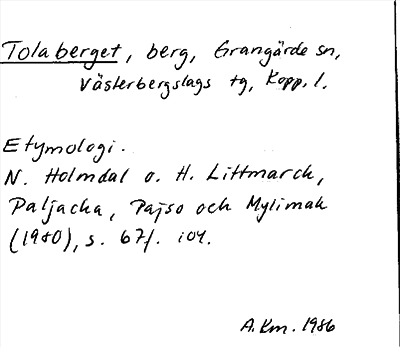 Tolaberget, berg, Grangärde sn,
Västerbergslags tg, Kopp. l.
Etymologi.
N. Holmdal o. H. Littmarck,
Paljacka, Pajso och Mylimak
(1980), s. 67f. 104.
A.Km. 1986